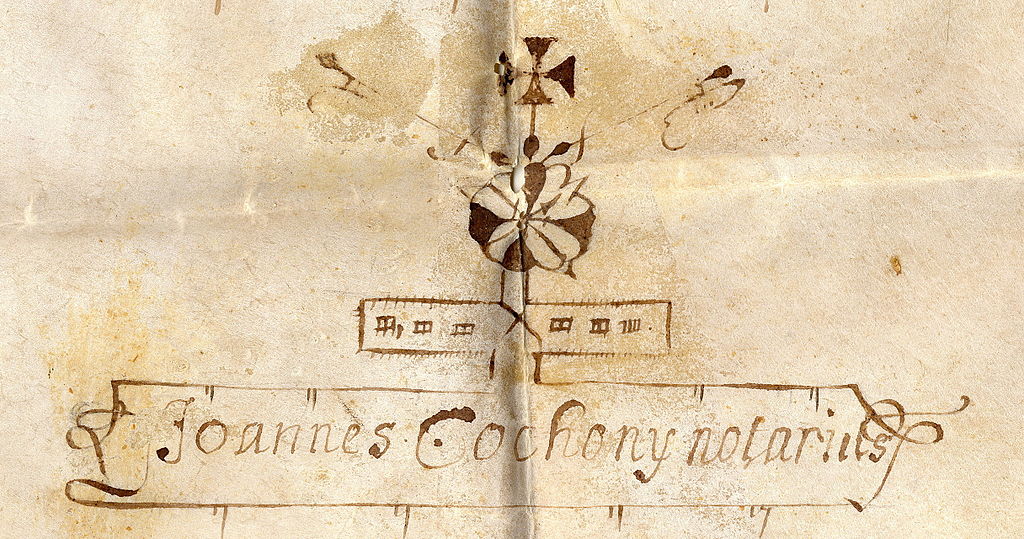 Joannes Cochony notarius